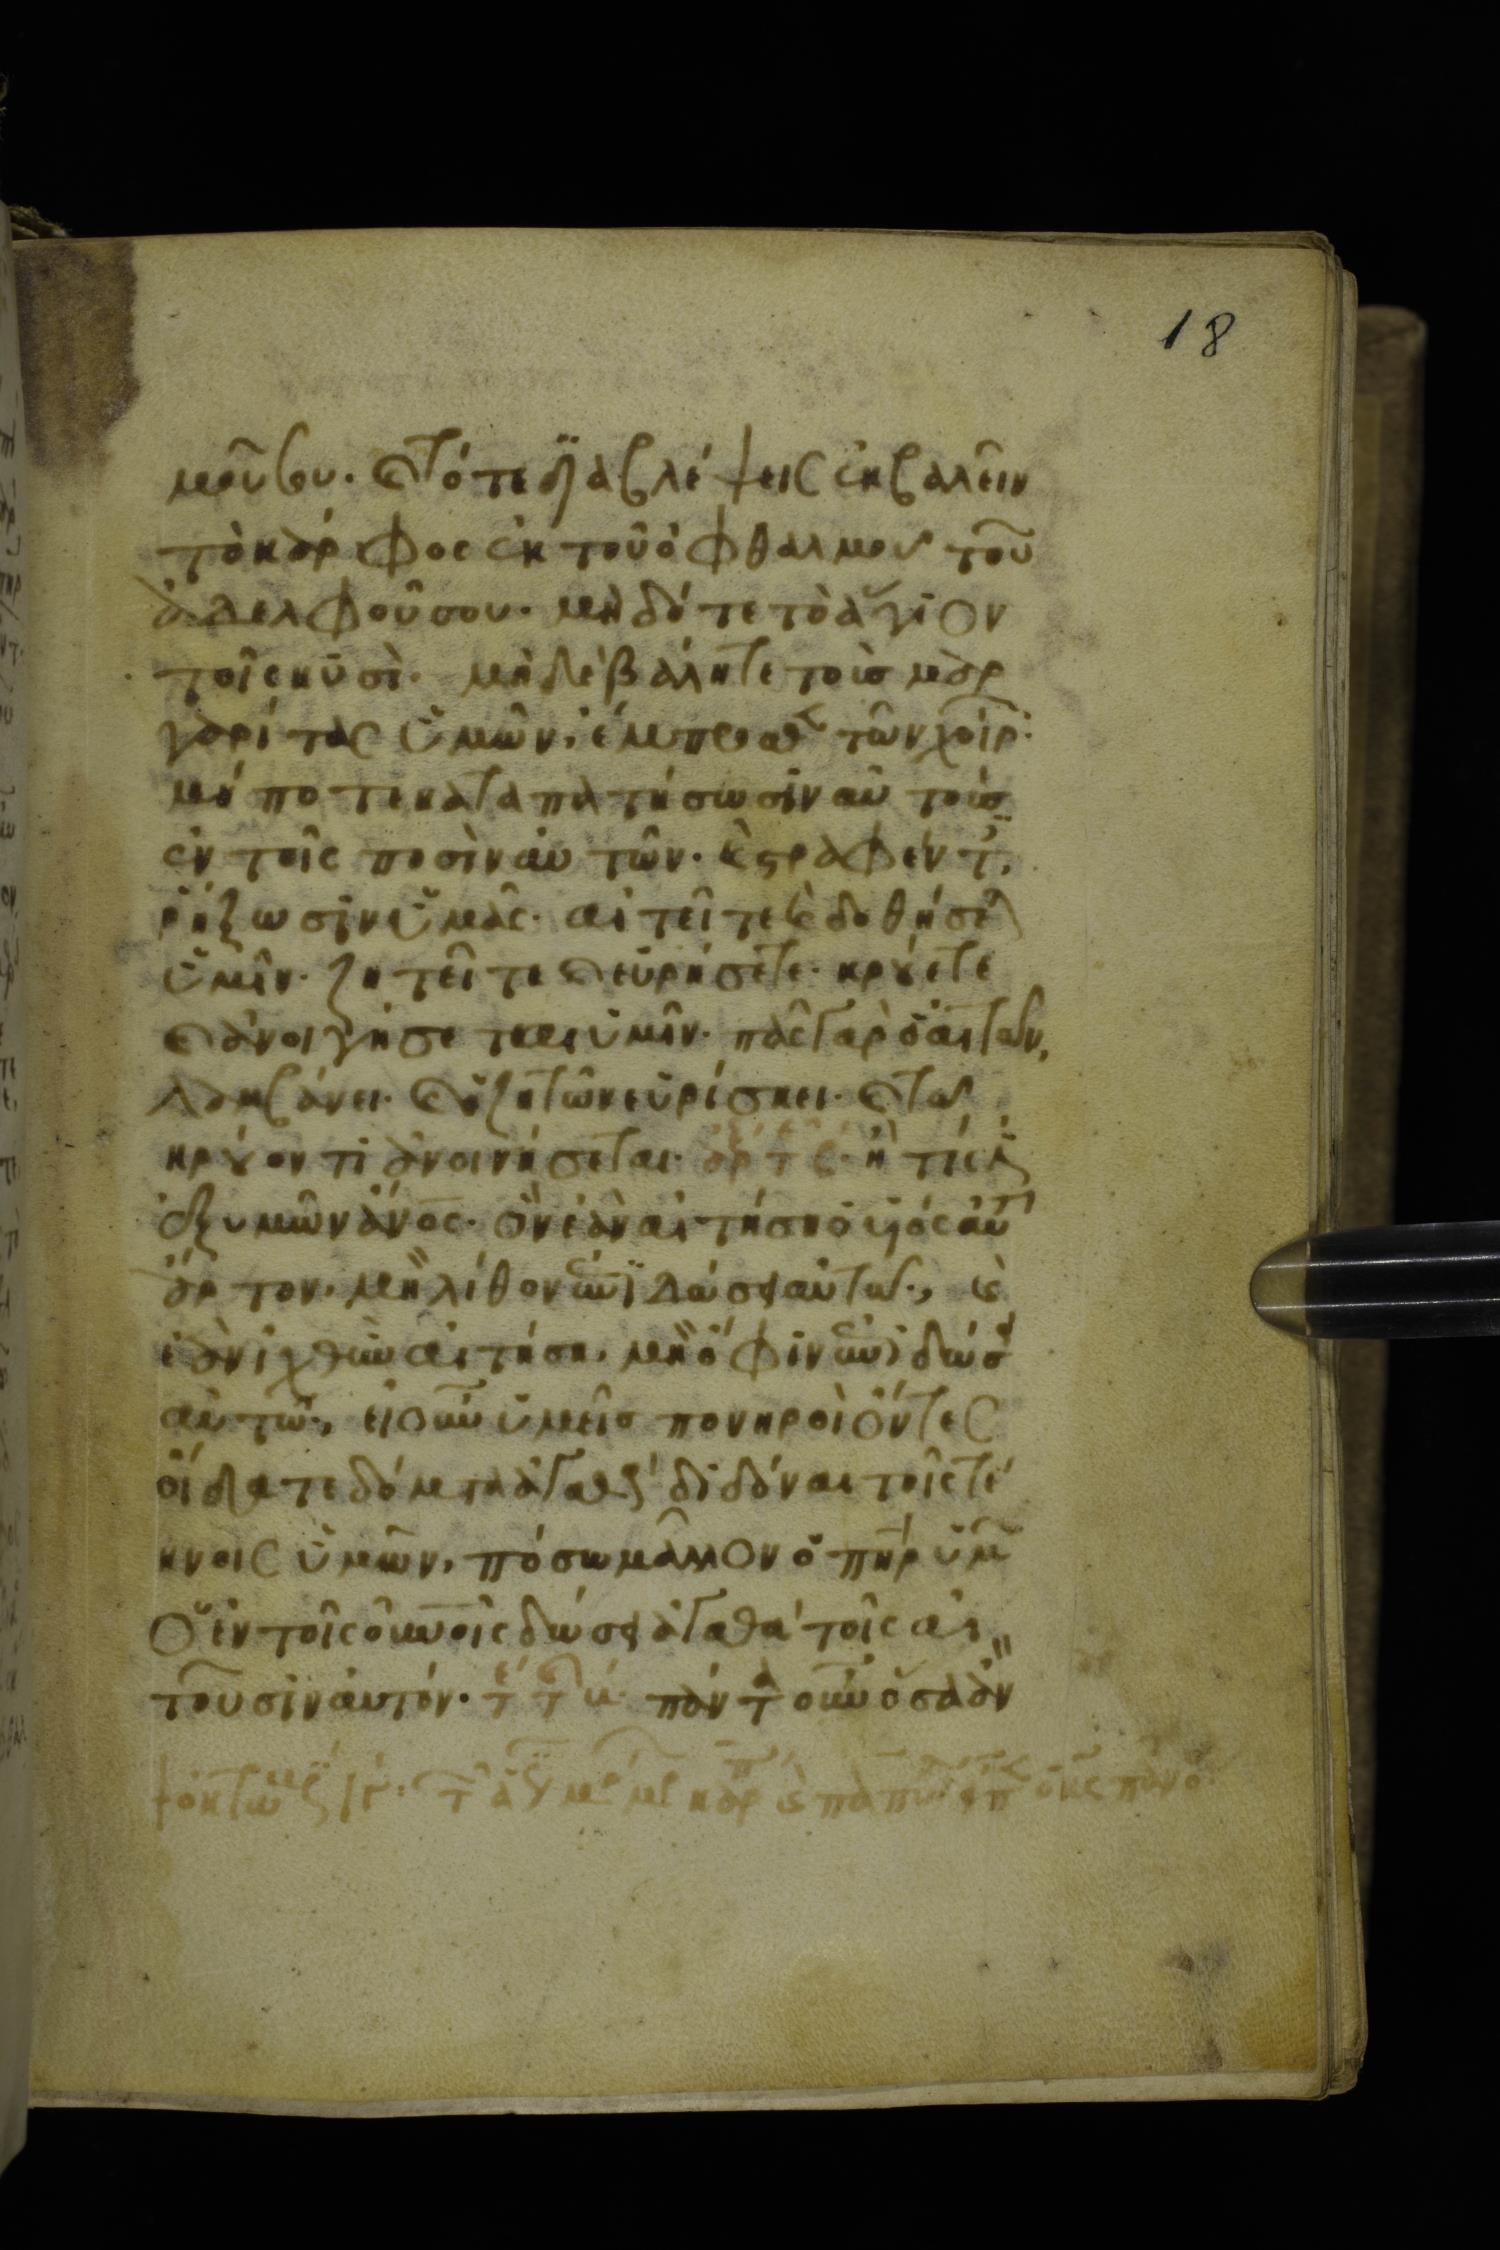 18
μοῦ σου. καὶ τότε διαβλέψεις ἐκβαλεῖν
τὸ κάρφος ἐκ τοῦ ὀφθαλμοῦ τοῦ
ἀδελφοῦ σου. μὴ δότε τὸ ἅγιον
τοῖς κυσὶ. μηδὲ βάλητε τοὺσ μαρ
γαρίτας ὑμῶν, ἔμπροσθ τῶν χοίρ.
μήποτε καταπατήσωσιν αὐτοὺσ
ἐν τοῖς ποσὶν αὐτῶν. καὶ στραφέντ,
ῥήξωσιν ὑμᾶς. αἰτεῖτε καὶ δοθήσετ
ὑμῖν. ζητεῖτε καὶ εὑρήσετε. κρούετε
καὶ ἀνοιγήσεται ὑμῖν. πᾶς γὰρ ὁ αἰτῶν,
λαμβάνει. καὶ ὁ ζητῶν εὑρίσκει. καὶ τῶ
κρούοντι ἀνοιγήσεται. ἢ τίς
ἐξ υμῶν ἄνος. ὃν ἐὰν αἰτήση ὁ υἱός αὐτ
ἄρτον, μὴ λίθον ἐπιδώσει αὐτῶ., καὶ
ἐὰν ἰχθὺν αἰτήση, μὴ ὄφιν ἐπιδώσ
αὐτῶ., εἰ οὖν ὑμεῖσ πονηροὶ ὄντες
οἴδατε δόματα ἀγαθὰ διδόναι τοῖς τέ
κνοις ὑμῶν, πόσω μᾶλλον ὁ πηρ ὑμ
ὁ ἐν τοῖς οὐνοῖς δώσει ἀγαθὰ τοῖς αἰ
τοῦσιν αὐτόν. πάντ οὖν ὅσα ἀν